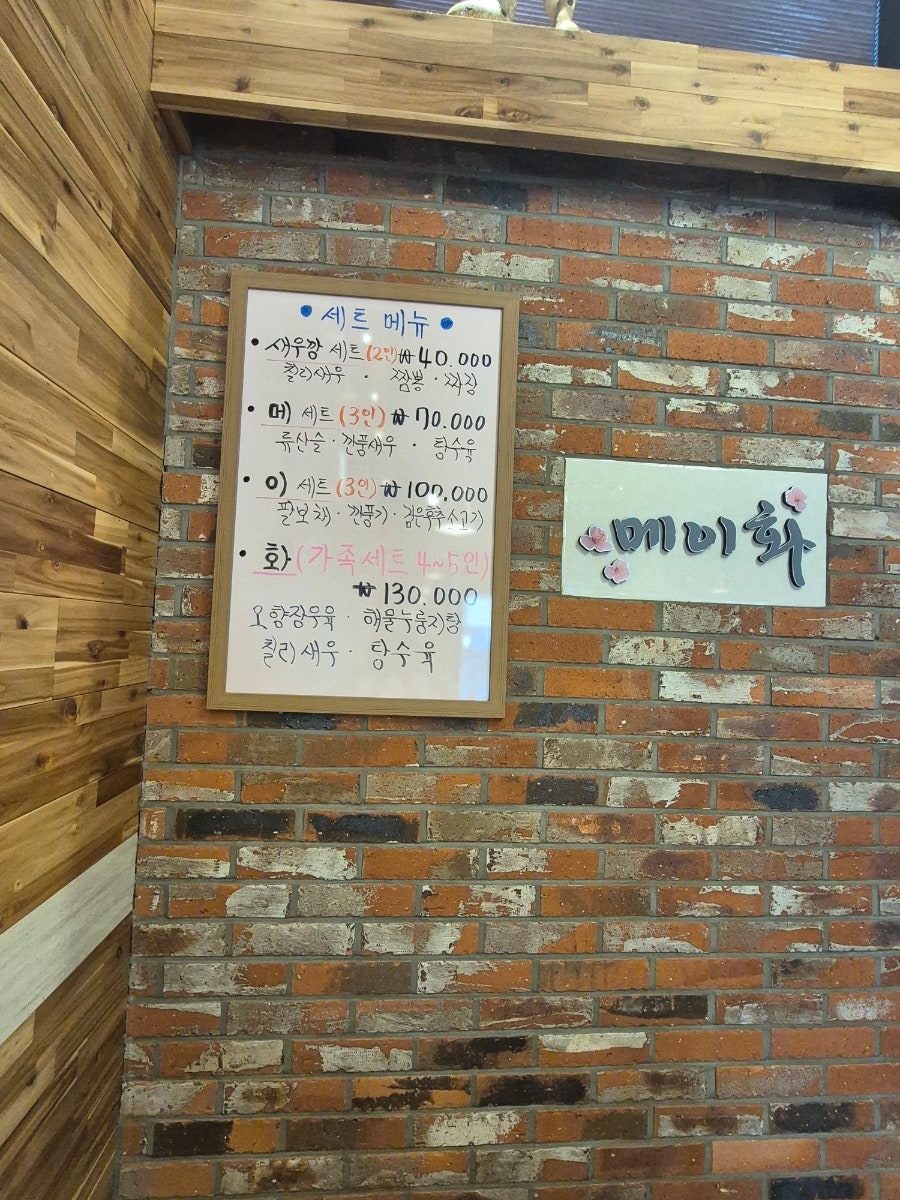 • 세트 메뉴 •
• 새우깡 세트 (2인) ₩40.000
칠리새우 · 짬뽕 · 짜장
• 메 세트 (3인) ₩70.000
류산슬 · 깐풍새우 · 탕수육
• 이 세트 (3인) ₩100.000
팔보채 · 깐풍기 · 검은후추소고기
• 화 (가족세트 4~5인)
₩130.000
오향장육 · 해물누룽지탕
칠리새우 · 탕수육
메이화